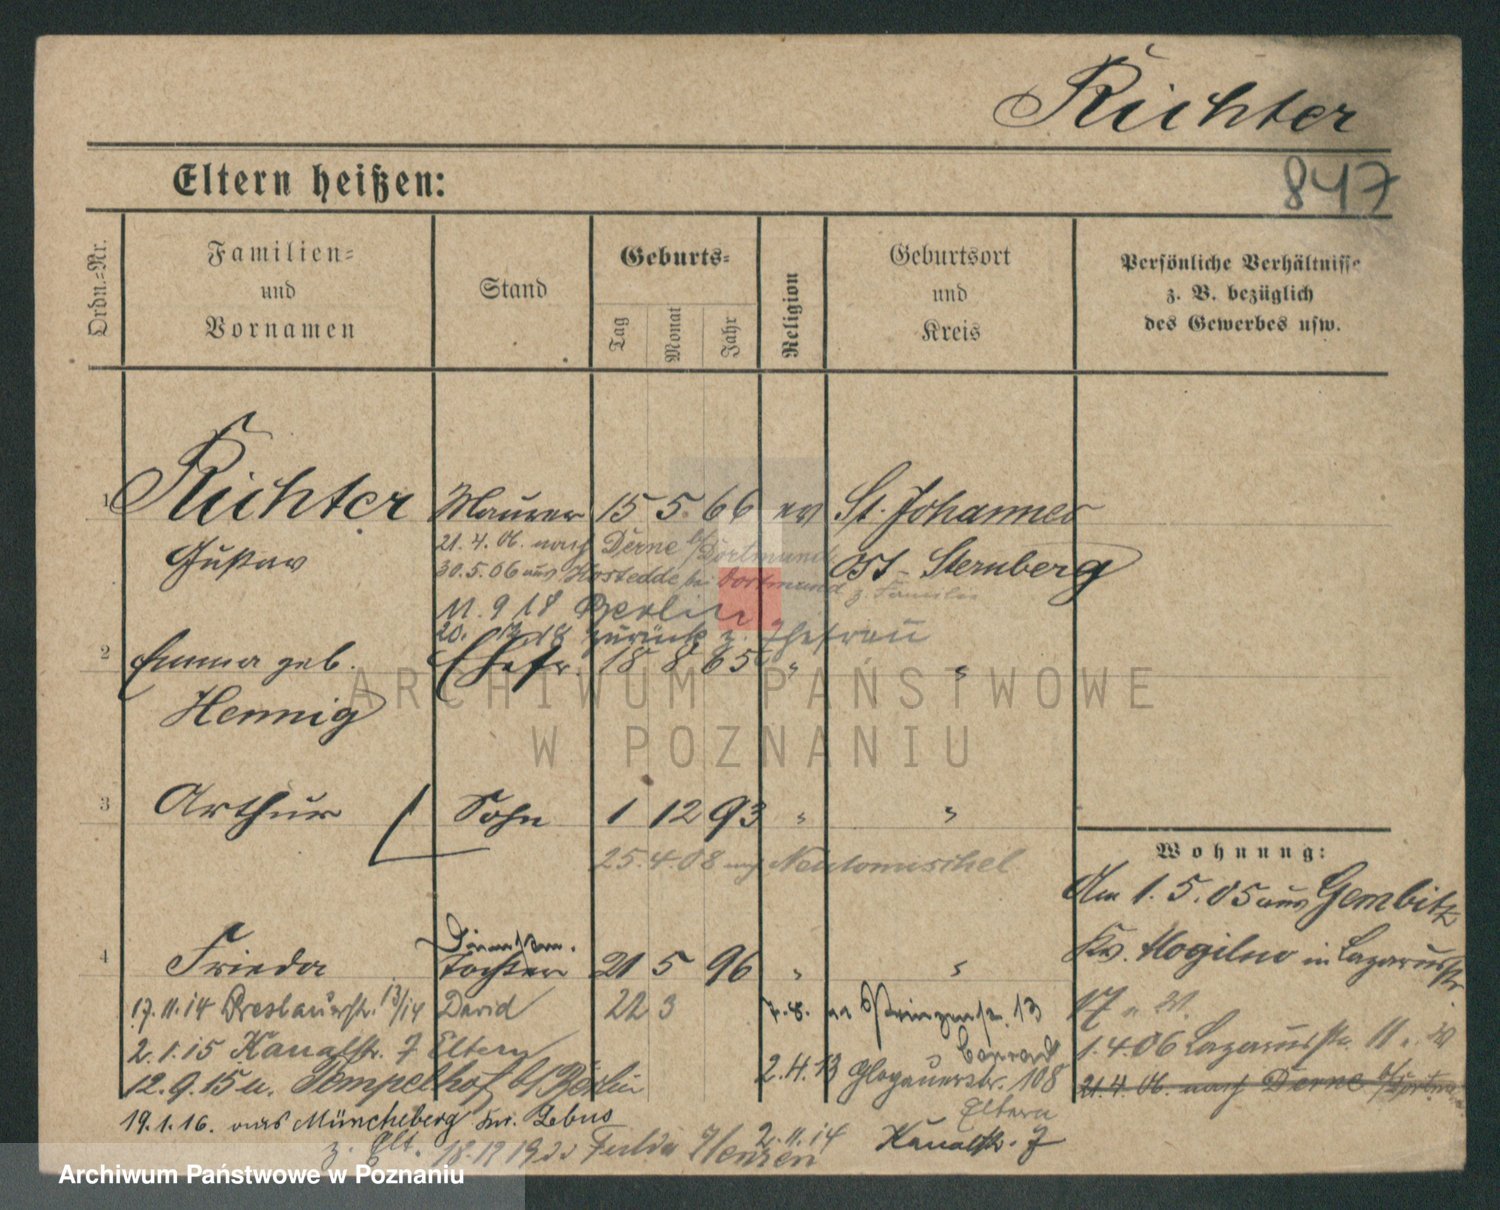 Richter
847
Eltern heißen:
Ordn.-Nr.
Familien-
und
Vornamen
Stand
Geburts-
Tag
Monat
Jahr
Religion
Geburtsort
und
Kreis
Persönliche Verhältnisse
z. B. bezüglich
des Gewerbes usw.
1 Richter Maurer 15 5. 66 ev St. Johannes
Gustav
21. 4. 06. nach Derne b/Dortmund
Ost-Sternberg
30.5.06 aus Kostedde bei Dortmund z. Familie
11. 9 18 Berlin
20. 12 18 zurück z. Ehefrau
2 Emma geb. Ehefr. 18 8 65 " "
Hennig
ARCHIWUM PAŃSTWOWE
W POZNANIU
3 Arthur Sohn 1 12 93 " "
25.4.08 Neutomischel
Wohnung:
Am 1. 5. 05 aus Gembitz
Kr. Mogilno in Lazarusstr
17
1.4.06 Lazarusstr. 11
21.4.06. nach Derne b/Dortmund
4 Frieda Tochter 21 5 96 " "
17. 11. 14 Breslauerstr. 13/14 David 22 3
7.8. Prinzenstr. 13
2. 1. 15 Kanalstr. 7 Eltern
Conrad
2.4.13 Glogauerstr. 108
12. 9. 15 u. Tempelhof b/Berlin
Eltern
19. 1. 16. aus Müncheberg Kr. Lebus
2. 11. 14 Kanalstr. 7
z. Elt. 18.12 19 Fulda Hessen
Archiwum Państwowe w Poznaniu